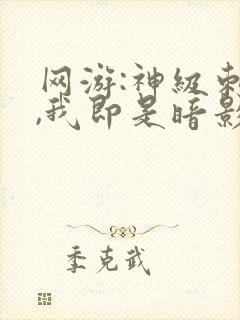 网游:神级刺
,我即是暗影
季克武